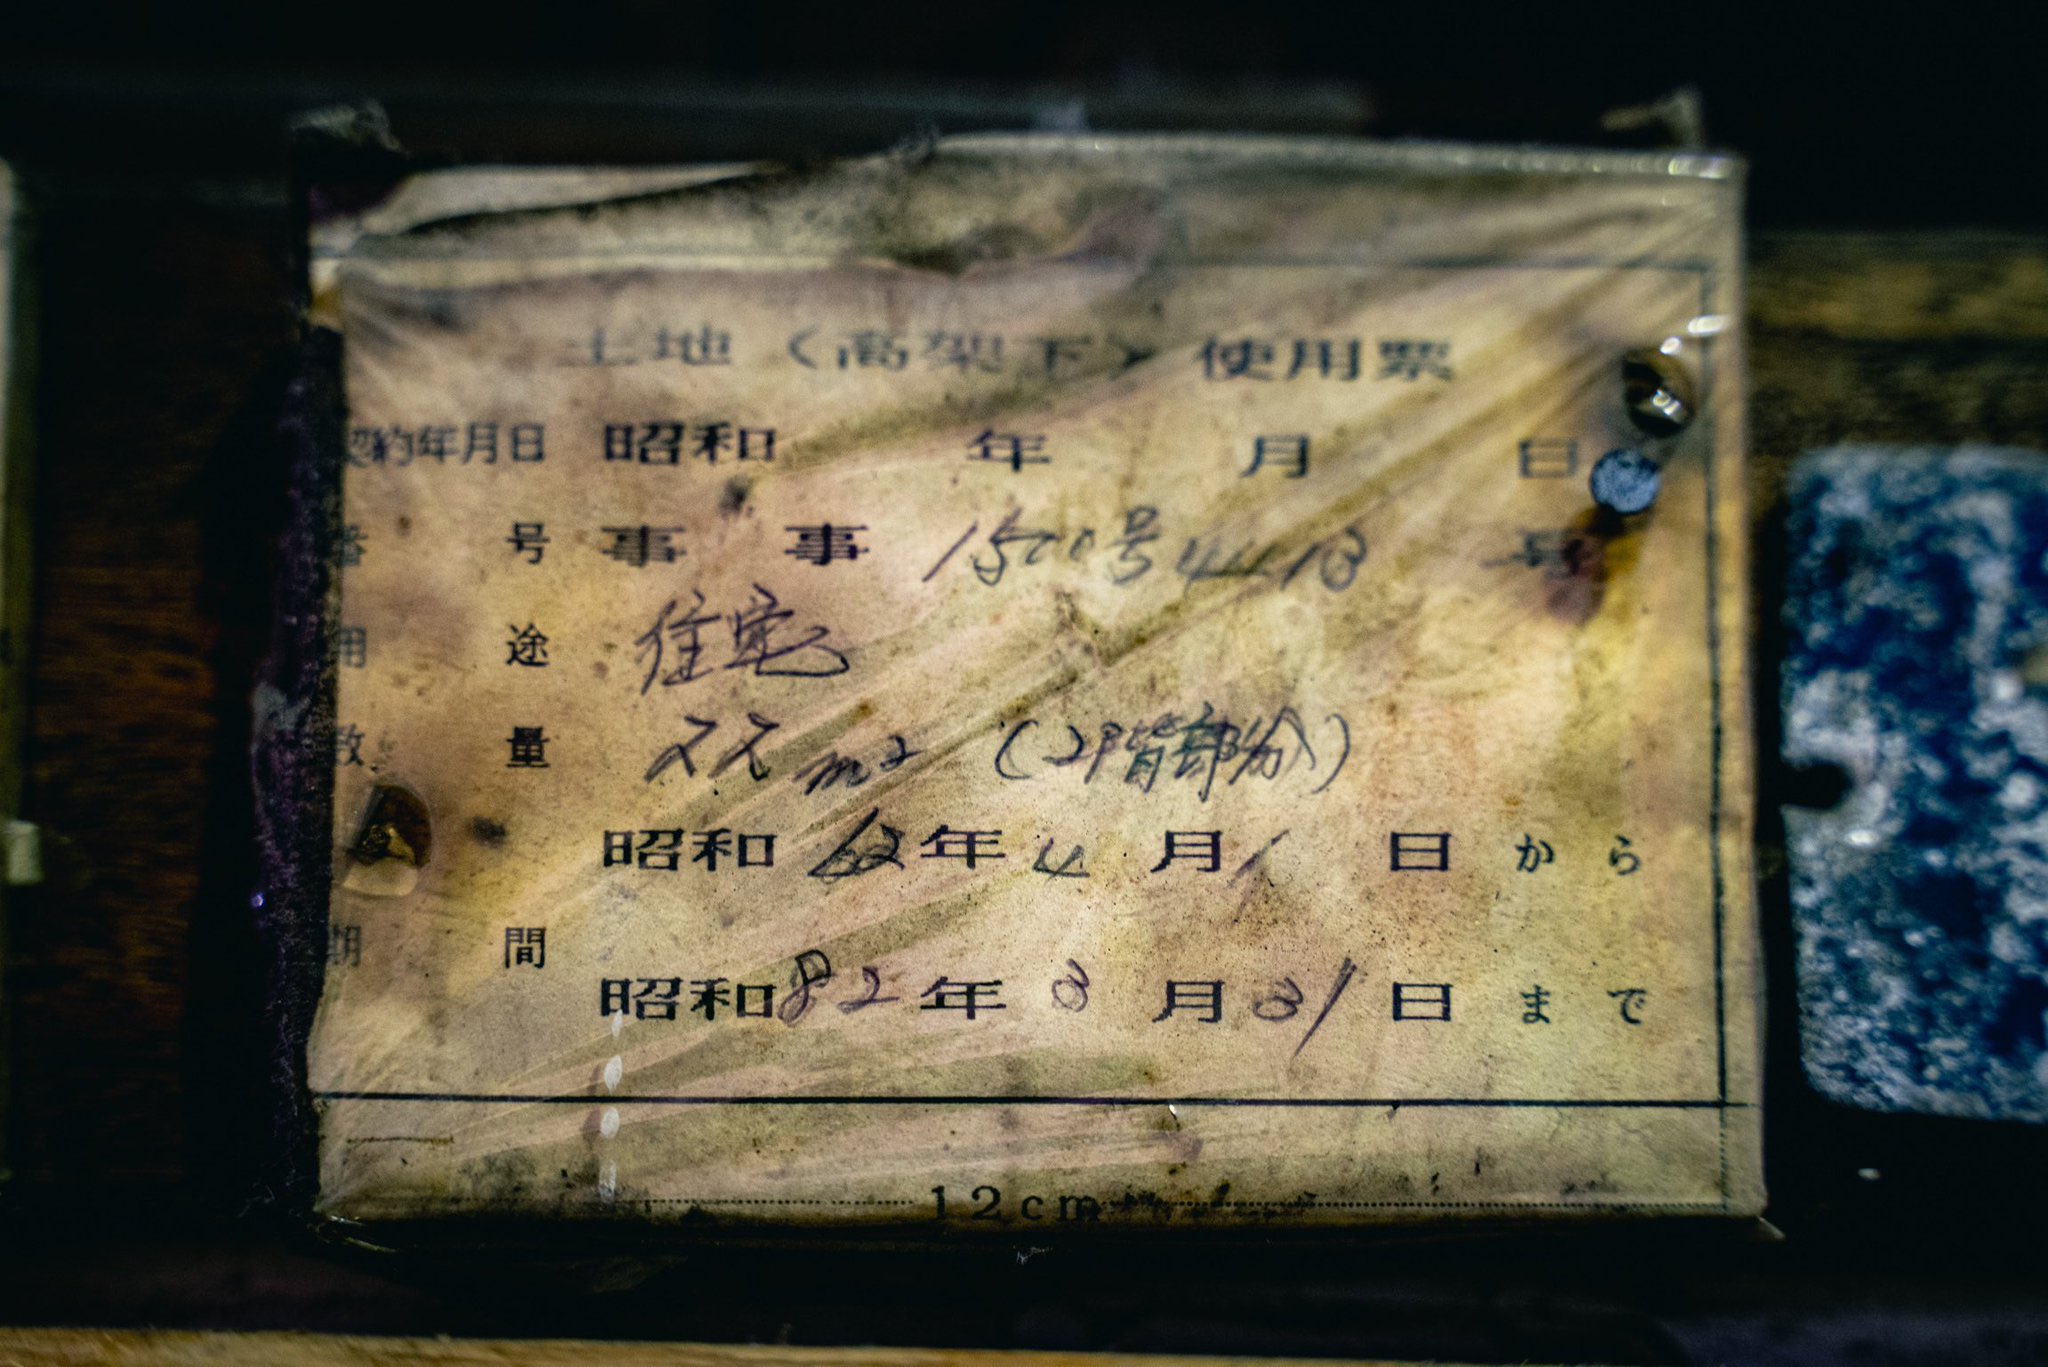 土地（高架下）使用票
契約年月日 昭和 年 月 日
番号 事事 1500号の4の13 号
用途 住宅
数量 22m2（2階部分）
昭和62年4月1日から
期間
昭和82年3月31日まで
12cm